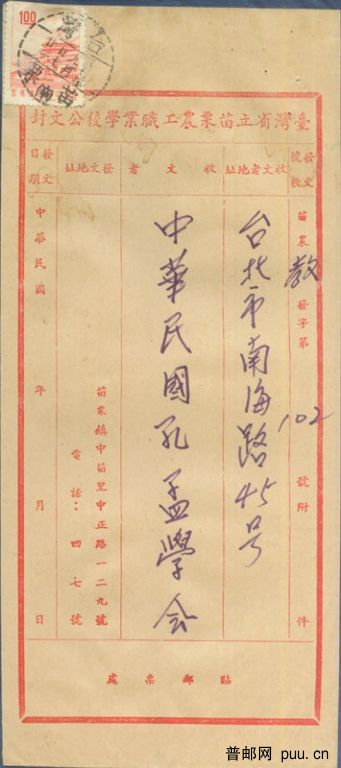 1.00
臺灣省立苗栗農工職業學校公文封
發文號數
收文者地址
收文者
發文地址
發文日期
苗農教發字第102號附件
台北市南海路45号
中華民國孔孟學会
苗栗鎮中苗里中正路一二九號
電話：四七號
中華民國年月日
貼郵票處
普邮网 puu.cn